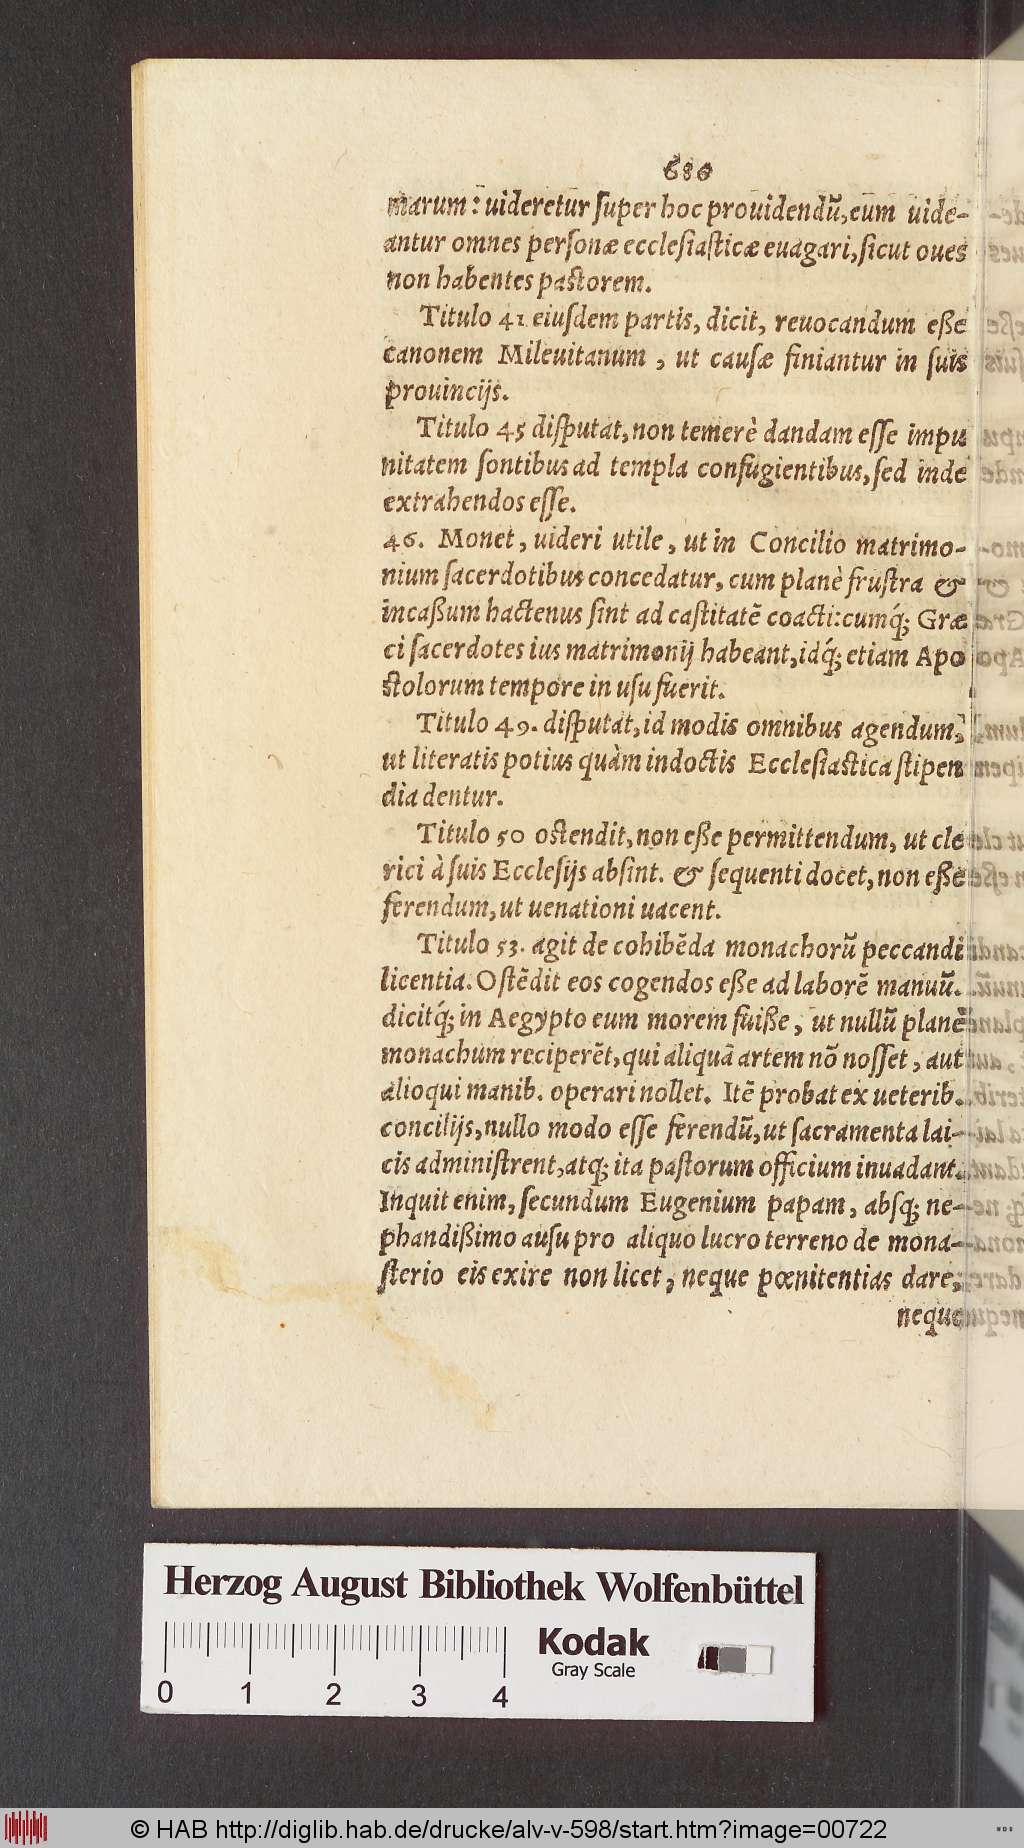 686
marum: uideretur super hoc prouidendũ, cum uide-
antur omnes personæ ecclesiasticæ euagari, sicut oues
non habentes pastorem.
Titulo 41 eiusdem partis, dicit, reuocandum eße
canonem Mileuitanum, ut causæ finiantur in suis
prouincijs.
Titulo 45 disputat, non temerè dandam esse impu
nitatem sontibus ad templa confugientibus, sed inde
extrahendos esse.
46. Monet, uideri utile, ut in Concilio matrimo-
nium sacerdotibus concedatur, cum planè frustra &
incaßum hactenus sint ad castitatẽ coacti: cumq́; Græ
ci sacerdotes ius matrimonij habeant, idq́; etiam Apo
stolorum tempore in usu fuerit.
Titulo 49. disputat, id modis omnibus agendum,
ut literatis potius quàm indoctis Ecclesiastica stipen
dia dentur.
Titulo 50 ostendit, non eße permittendum, ut cle
rici à suis Ecclesijs absint. & sequenti docet, non eße
ferendum, ut uenationi uacent.
Titulo 53. agit de cohibẽda monachorũ peccandi
licentia. Ostẽdit eos cogendos eße ad laborẽ manuũ.
dicitq́; in Aegypto eum morem fuiße, ut nullũ planè
monachum reciperẽt, qui aliquã artem nõ nosset, aut
alioqui manib. operari nollet. Itẽ probat ex ueterib.
concilijs, nullo modo esse ferendũ, ut sacramenta lai-
cis administrent, atq; ita pastorum officium inuadant.
Inquit enim, secundum Eugenium papam, absq; ne-
phandißimo ausu pro aliquo lucro terreno de mona-
sterio eis exire non licet, neque pœnitentias dare,
neque
Herzog August Bibliothek Wolfenbüttel
Kodak
Gray Scale
0 1 2 3 4
© HAB http://diglib.hab.de/drucke/alv-v-598/start.htm?image=00722